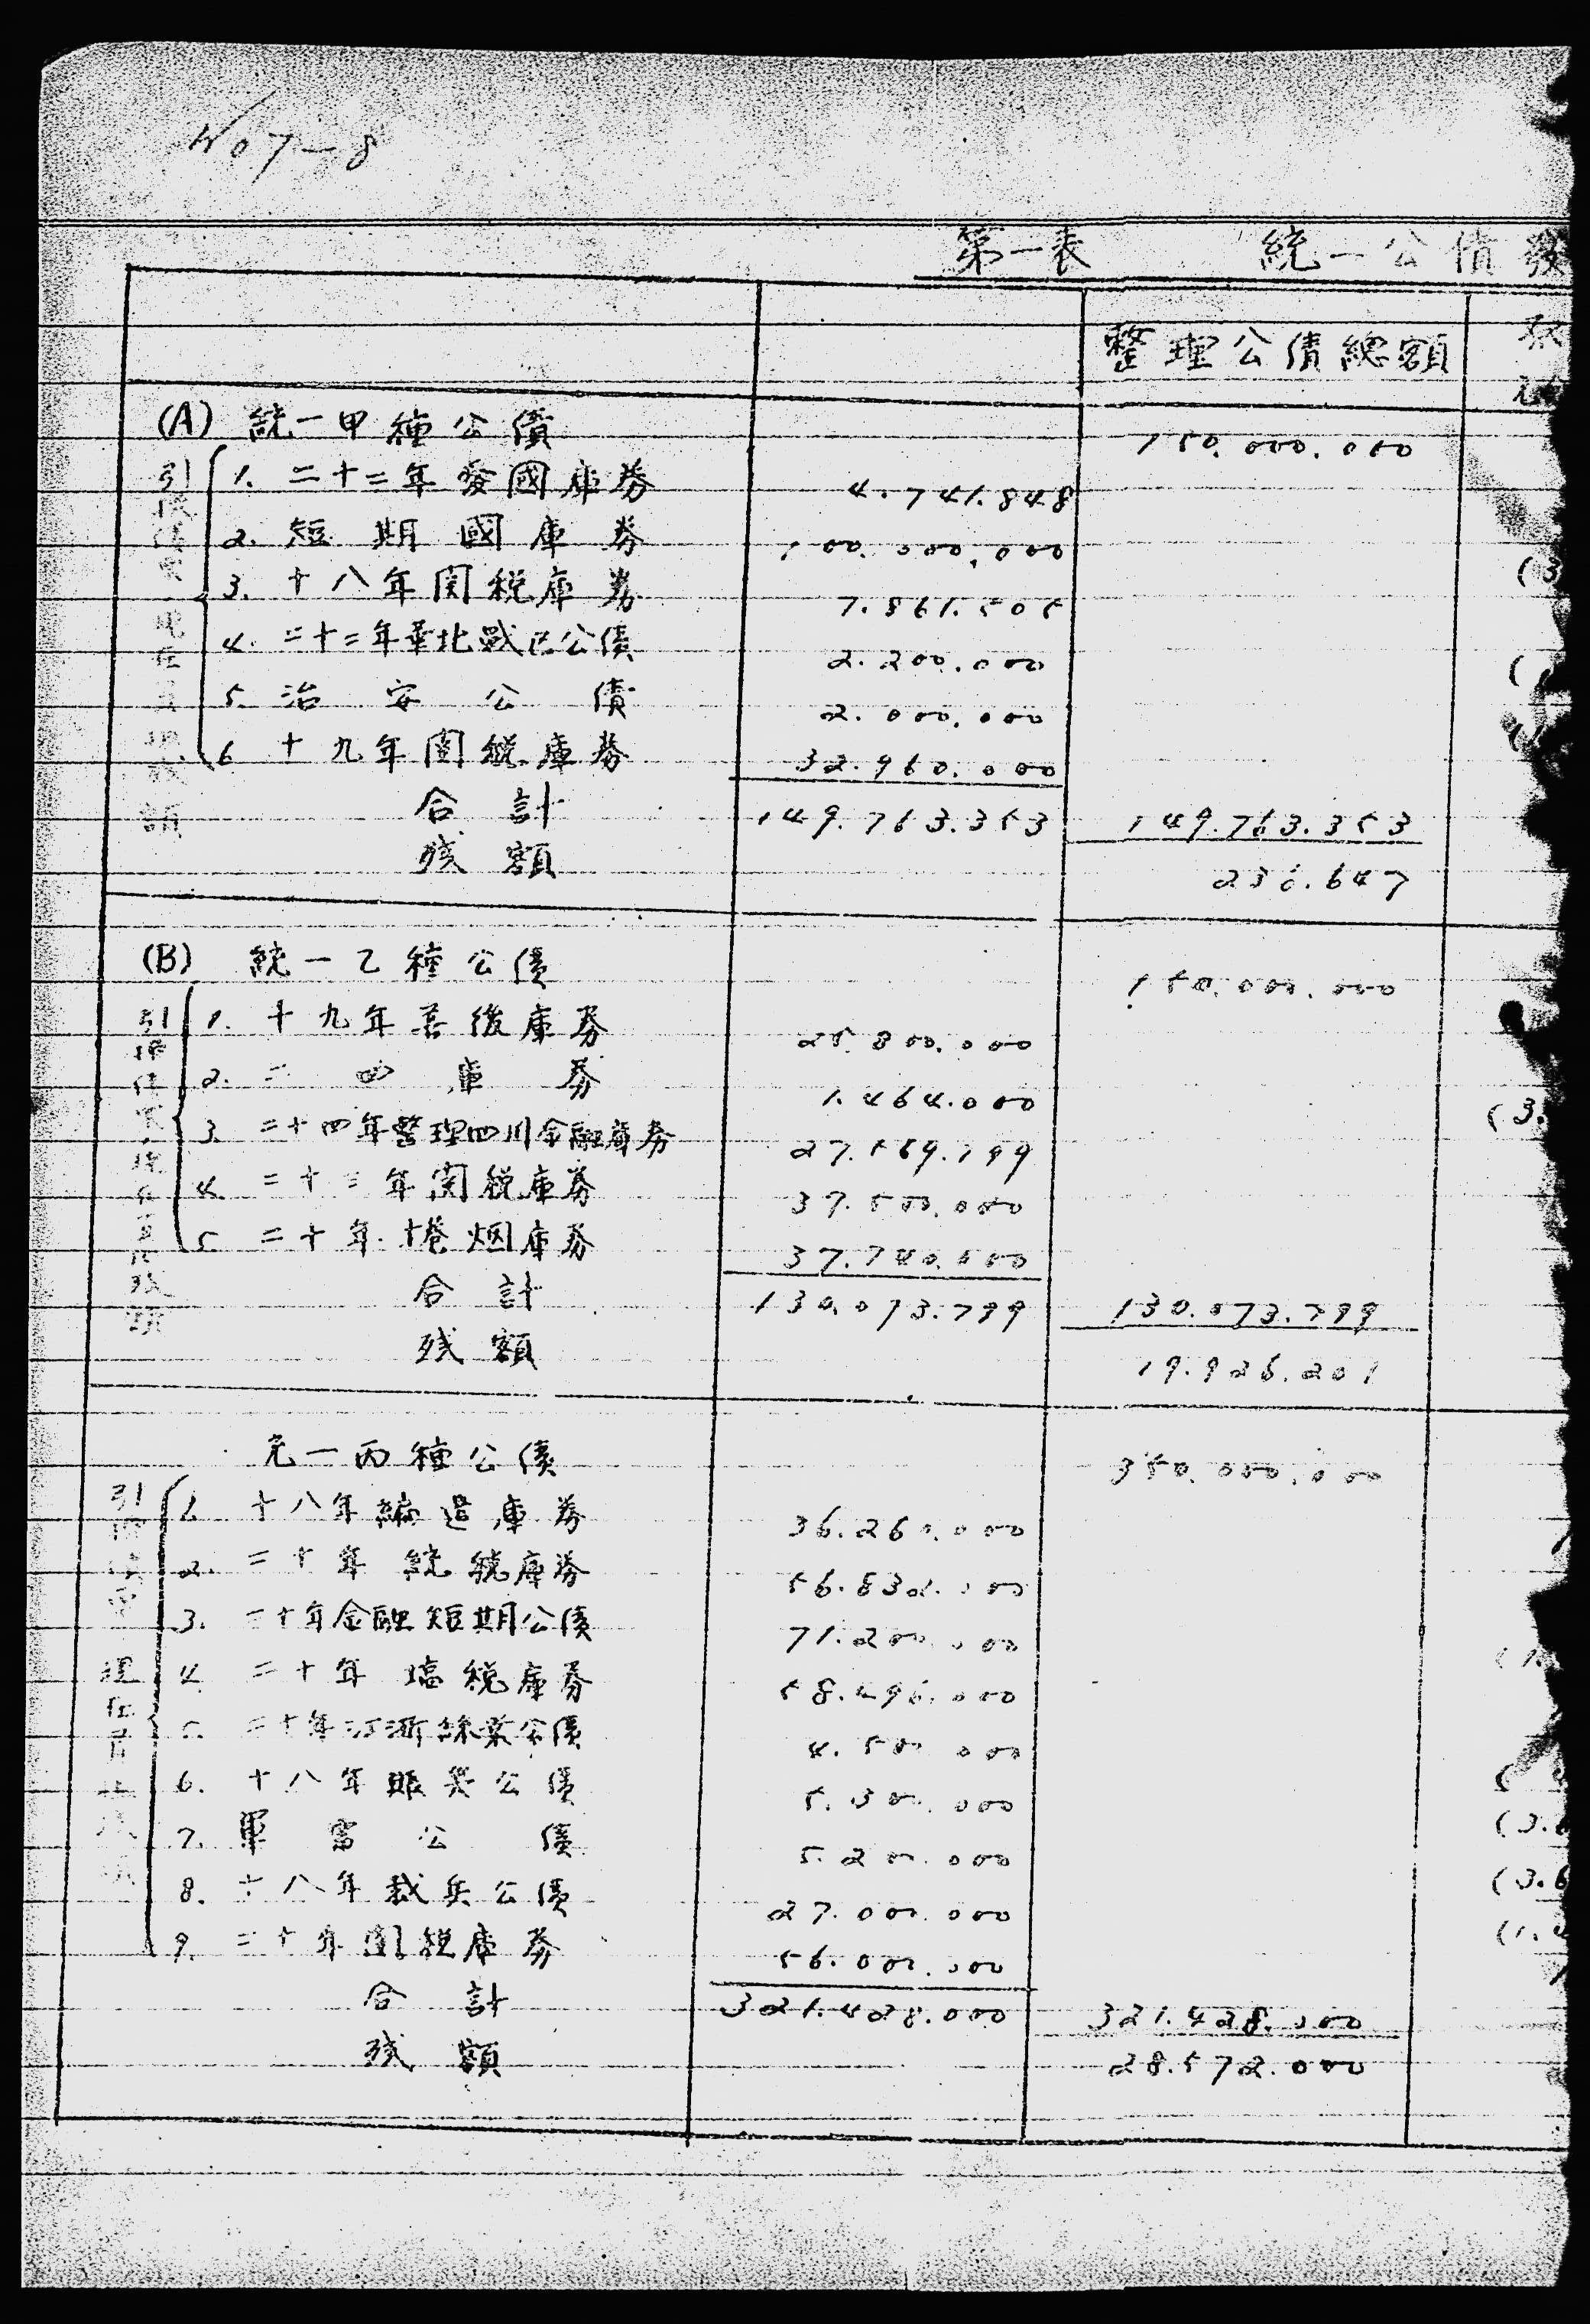 No 7-8
第一表 統一公債發
整理公債總額
(A) 統一甲種公債 150.000.000
1. 二十二年愛國庫券 4.741.848
2. 短期國庫券 100.000.000
3. 十八年関税庫券 7.861.505
4. 二十二年華北戦区公債 2.200.000
5. 治安公債 2.000.000
6 十九年関税庫券 32.960.000
合計 149.763.353 149.763.353
残額 236.647
(B) 統一乙種公債 150.000.000
1. 十九年善後庫券 25.800.000
2. 二四庫券 1.464.000
3. 二十四年整理四川金融庫券 27.569.799
4. 二十三年関税庫券 37.500.000
5 二十年捲烟庫券 37.740.000
合計 130.073.799 130.073.799
残額 19.926.201
統一丙種公債 350.000.000
1. 十八年編遣庫券 36.260.000
2. 二十年統税庫券 56.832.000
3. 二十年金融短期公債 71.200.000
4 二十年塩税庫券 58.496.000
5. 二十年江浙絲業公債 4.500.000
6. 十八年賑災公債 5.300.000
7. 軍需公債 5.200.000
8. 十八年裁兵公債 27.000.000
9. 二十年関税庫券 56.000.000
合計 321.428.000 321.428.000
残額 28.572.000